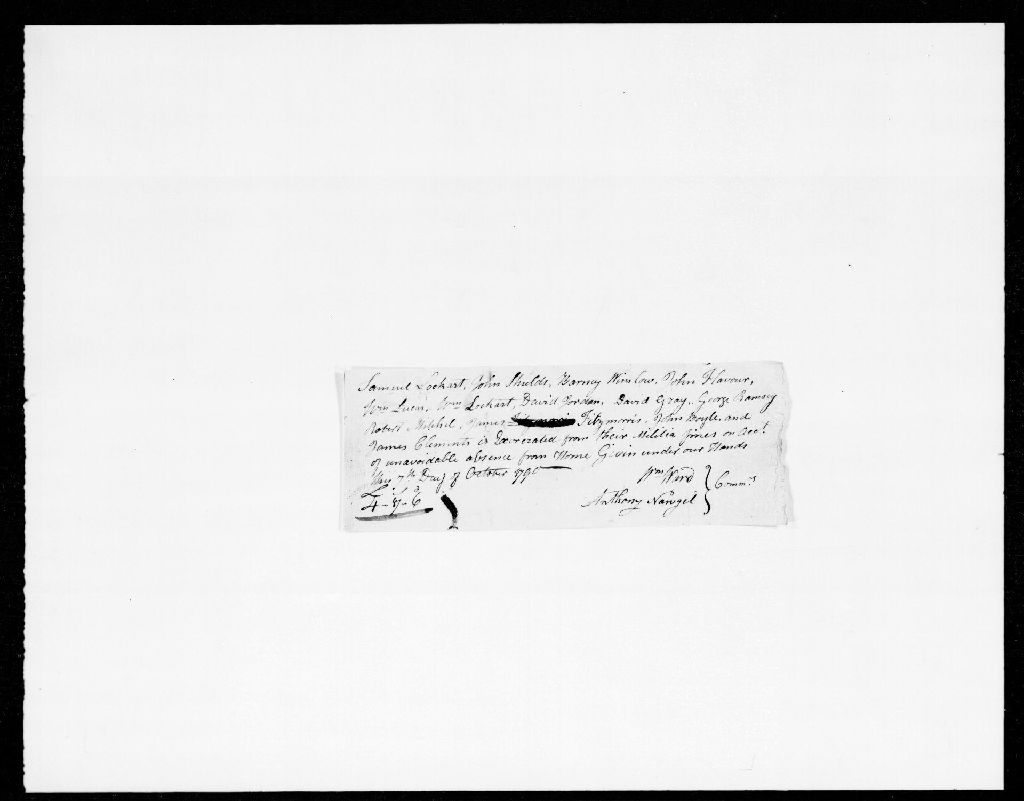 Samuel Lockart, John Shields, Barney Winslow, John Flavour,
Wm Lucas, Wm Lockart, David Jordan, David Gray, George Ramsey
Robert Mitchel, James Fitzmorris, John Boyle, and
James Clements is Exonerated from their Militia fines on Acct
of unavoidable absence from Home Given under our Hands
this 7th Day of October 179
£ s d
4-7-6
Wm Ward
Anthony
Comms